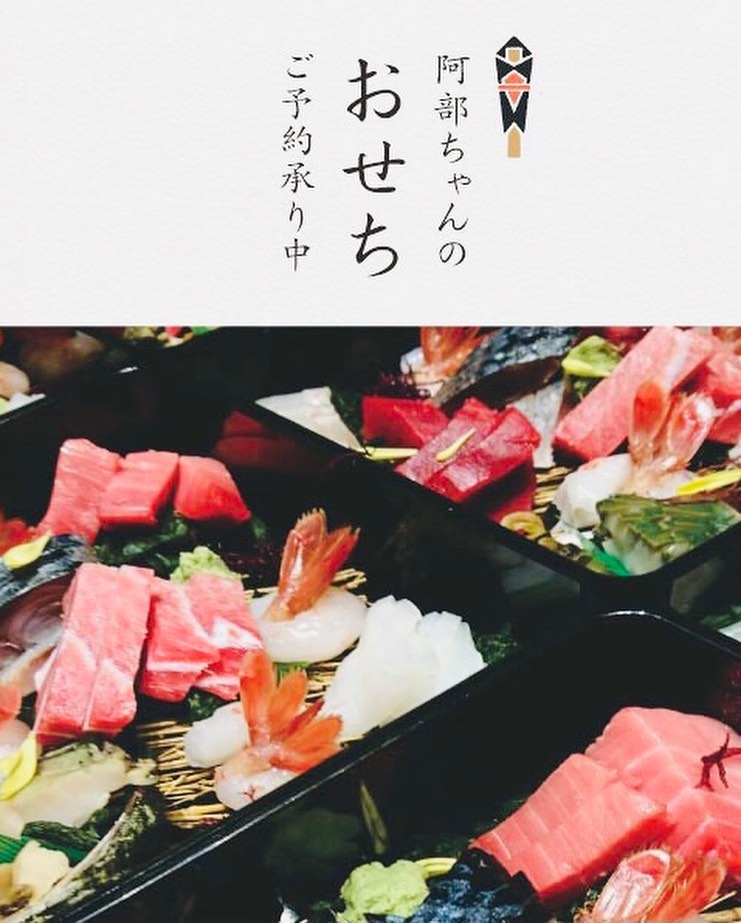 阿部ちゃんの
おせち
ご予約承り中